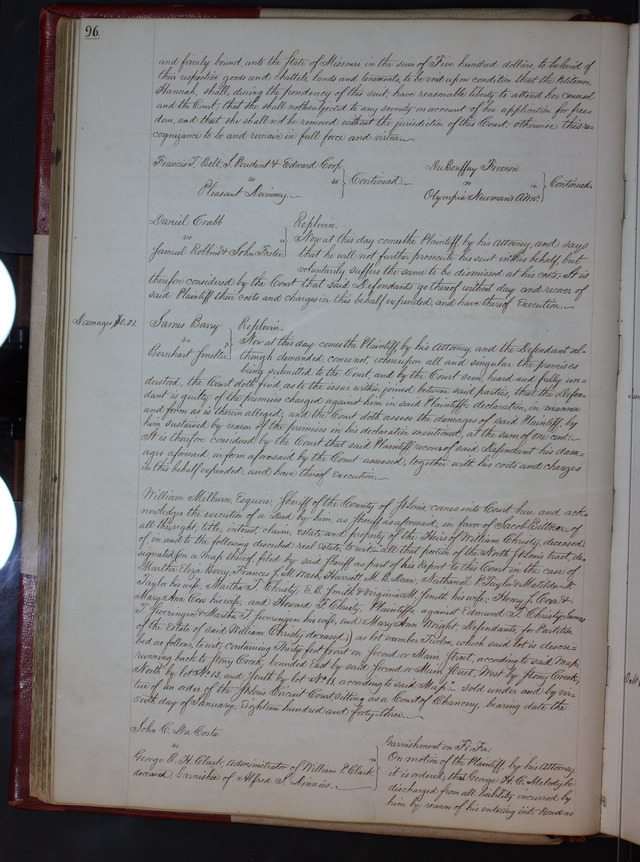 96.
and firmly bound unto the State of Missouri in the sum of Five hundred dollars, to be levied of
their respective goods and chattels, lands and tenements, to be void upon condition that the Petitioner,
Hannah, shall, during the pendency of this suit have reasonable liberty to attend her counsel
and the Court, that she shall not be subjected to any severity on account of her application for free-
dom, and that she shall not be removed without the jurisdiction of this Court, otherwise this re-
cognizance to be and remain in full force and virtue.
Francis T. Belt, S. Prudent & Edward Corp
vs
Pleasant
Continued
vs
Olympia Newman's Admr.
Continued
Daniel Crabb
vs
Samuel Robbins & John Foster
Replevin.
Now at this day comes the Plaintiff by his Attorney, and says
that he will not further prosecute his suit in this behalf but
voluntarily suffers the same to be dismissed at his costs. It is
therefore considered by the Court that said Defendants go thereof without day and recover of
said Plaintiff their costs and charges in this behalf expended, and have thereof Execution.
Damages $0.01.
James Barry
vs
Bernhart Smelter
Replevin.
Now at this day comes the Plaintiff by his Attorney and the Defendant al-
though demanded, comes not, whereupon all and singular the premises
being submitted to the Court and by the Court seen, heard and fully un-
derstood, the Court doth find, as to the issue within joined between said parties, that the Defen-
dant is guilty of the premises charged against him in said Plaintiff's declaration, in manner
and form as is therein alleged; and the Court doth assess the damages of said Plaintiff, by
him sustained by reason of the premises in his declaration mentioned, at the sum of one cent.
It is therefore considered by the Court that said Plaintiff recover of said Defendant his dam-
ages aforesaid in form aforesaid by the Court assessed, together with his costs and charges
in this behalf expended, and have thereof execution.
William Milburn, Esquire, Sheriff of the County of St. Louis, comes into Court here and ack-
nowledges the execution of a Deed by him, as Sheriff as aforesaid, in favor of Jacob Buttner, of
all the right, title, interest, claim, estate and property of the Heirs of William Christy, deceased,
of, in and to the following described real Estate to wit— all that portion of the North St. Louis tract, de-
signated (on a map thereof filed by said Sheriff as part of his report to this Court in the case of
Martha Eliza Berry, Frances J. M. Wash, Harriett M. B. Dean, Nathaniel P. Taylor & Matilda N.
Taylor his wife, Martha T. Christy, E. B. Smith & Virginia M. Smith his wife, Henry J. Coxe &
Mary Ann Coxe his wife, and Howard F. Christy, Plaintiffs against Edmund T. Christy, James
T. Swearingen & Martha T. Swearingen his wife, and Mary Ann Wright, Defendants, for Partition
of the Estate of said William Christy deceased) as lot number Twelve, which said lot is descri-
bed as follows, to wit, containing Thirty feet front on second or Main Street, according to said Map,
running back to Stony Creek, bounded East by said second or Main Street, West by Stony Creek,
North by lot No. 13, and South by lot No. 11, according to said Map:— sold under and by vir-
tue of an order of the St. Louis Circuit Court sitting as a Court of Chancery, bearing date the
sixth day of January, Eighteen hundred and forty-three.
John C. Da Costa
vs
George H. Clark, administrator of William P. Clark,
deceased, Garnishee of Alfred S.
Garnishment on Fi. Fa.
On motion of the Plaintiff by his Attorney,
it is ordered, that George H. C. Melody be
discharged from all liability incurred by
him by reason of his entering into Bond as